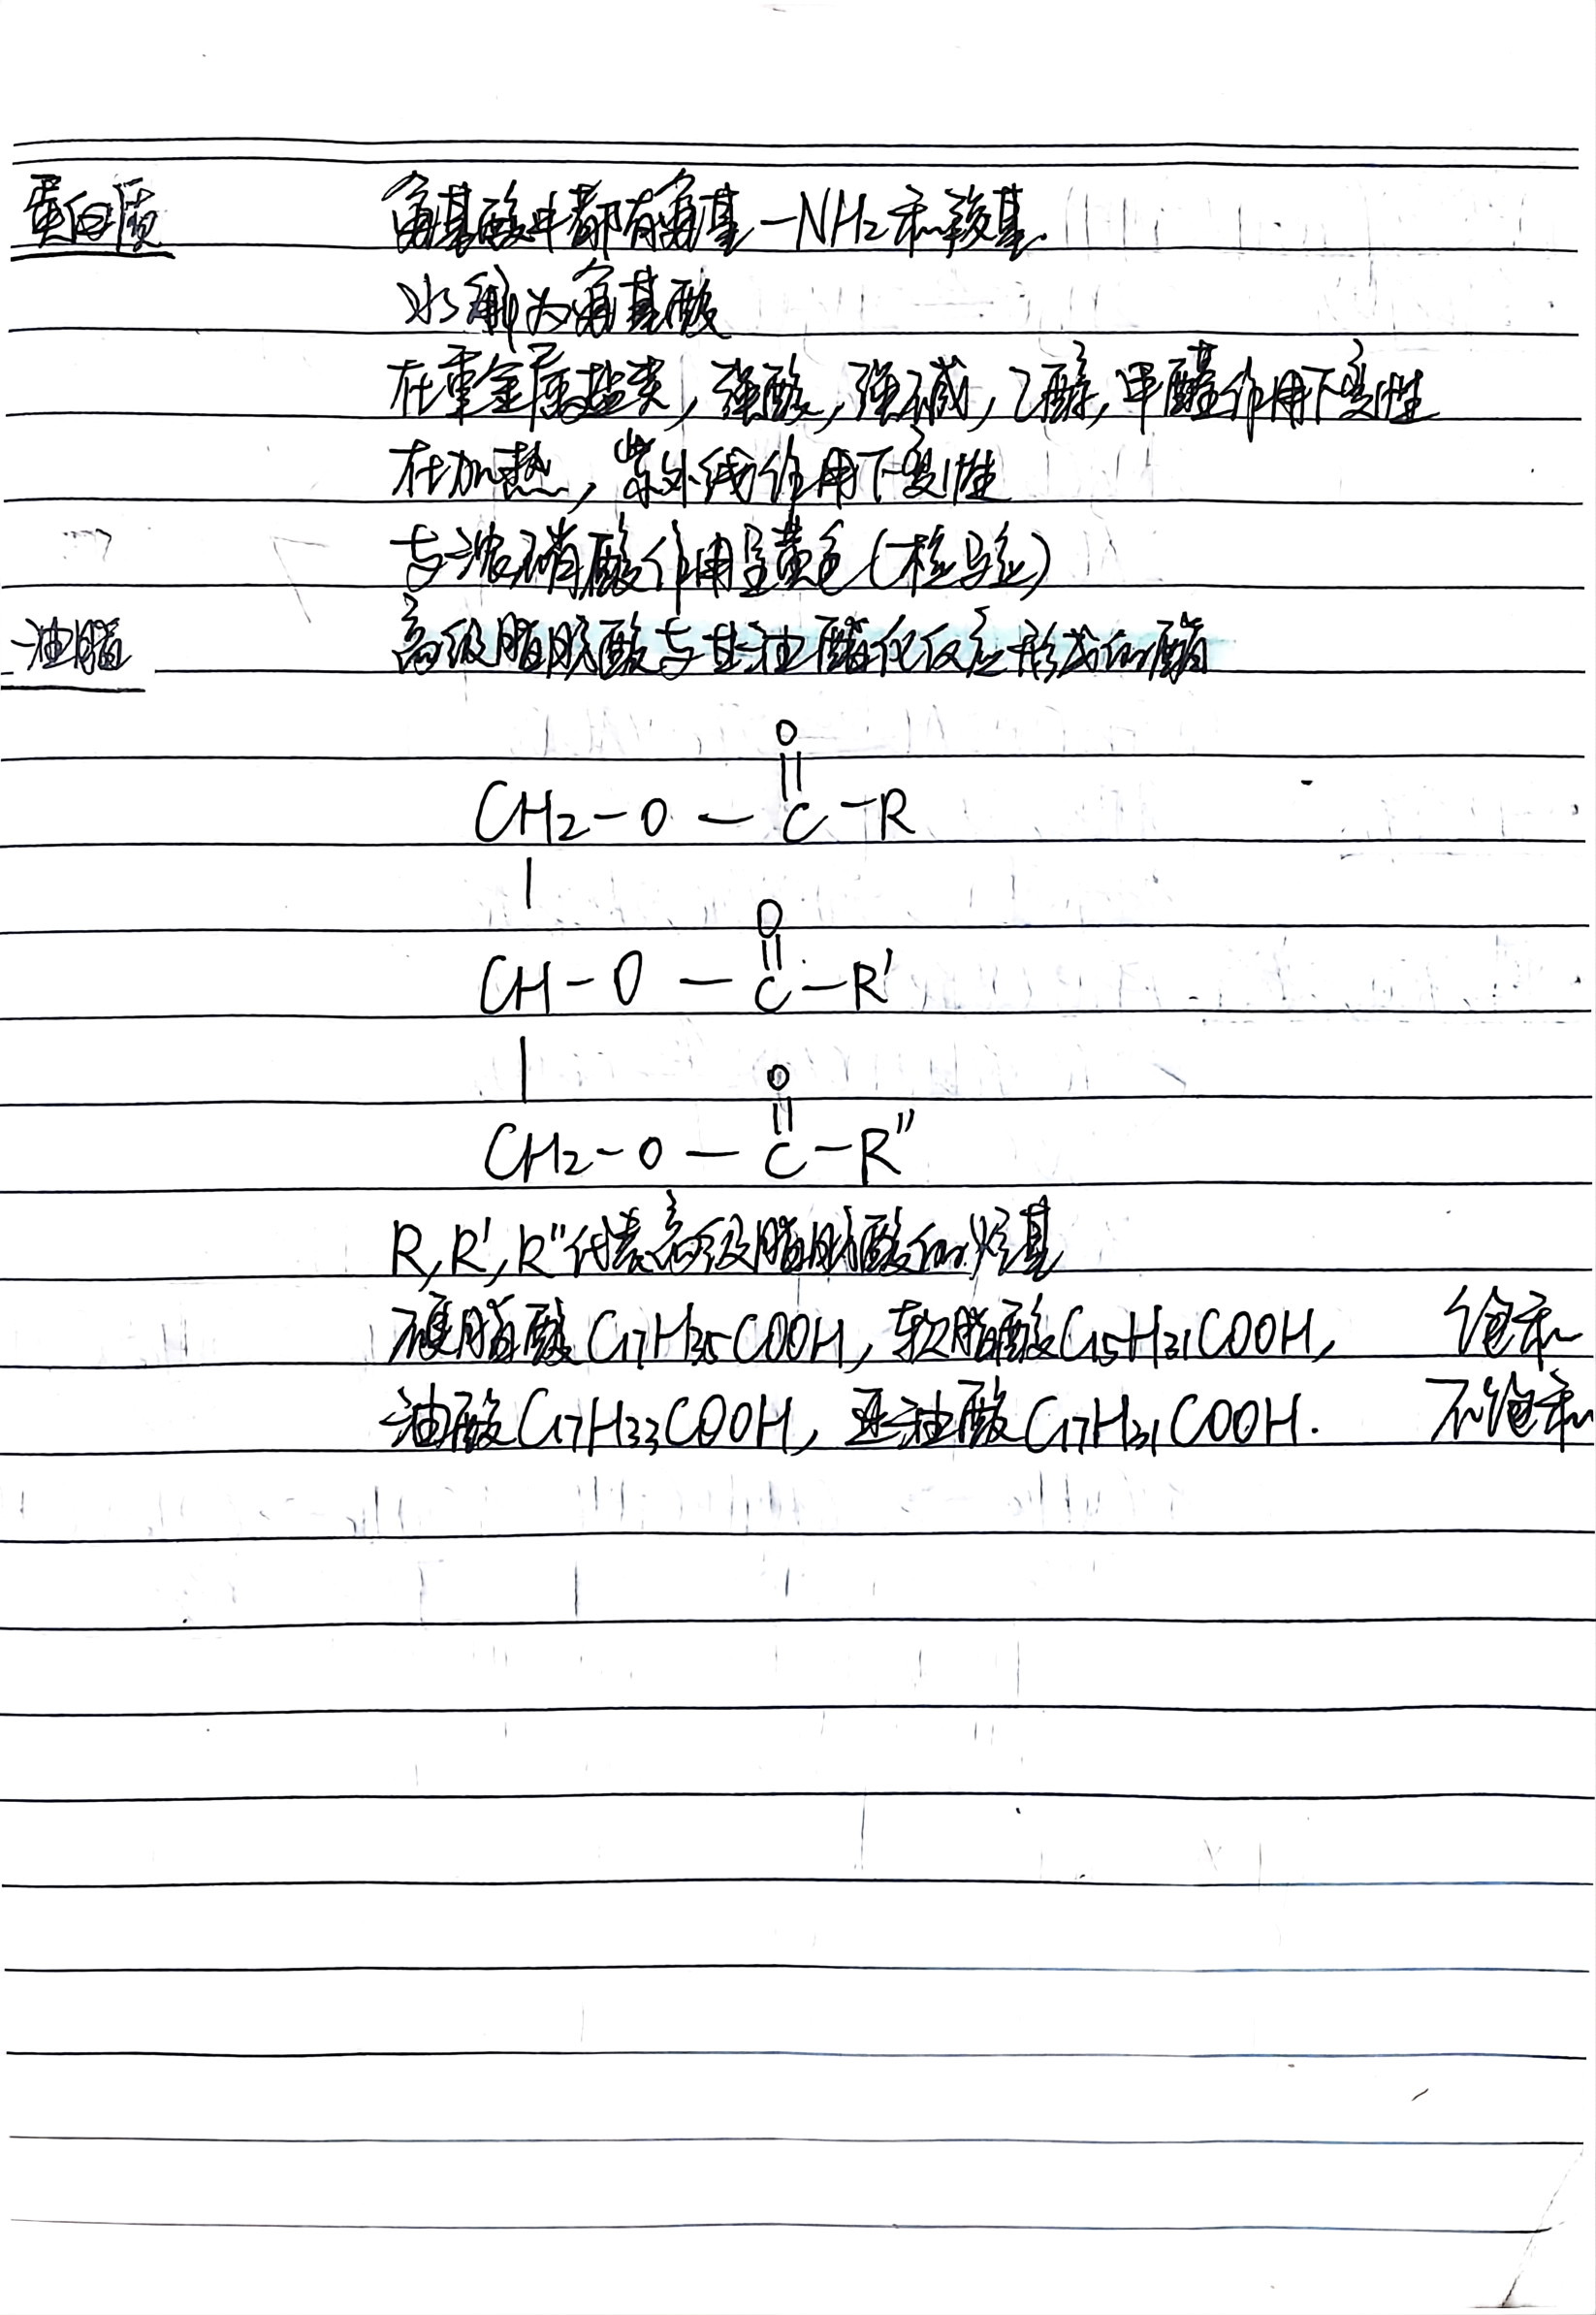 蛋白质 氨基酸中都有氨基-NH₂和羧基.
水解为氨基酸
在重金属盐类,强酸,强碱,乙醇,甲醛作用下变性
在加热,紫外线作用下变性
与浓硝酸作用呈黄色(检验)
油脂 高级脂肪酸与甘油酯化反应形成的酯
O
||
CH₂-O-C-R
|
O
||
CH-O-C-R'
|
O
||
CH₂-O-C-R''
R,R',R''代表高级脂肪酸的烃基
硬脂酸C₁₇H₃₅COOH,软脂酸C₁₅H₃₁COOH, 饱和
油酸C₁₇H₃₃COOH,亚油酸C₁₇H₃₁COOH. 不饱和